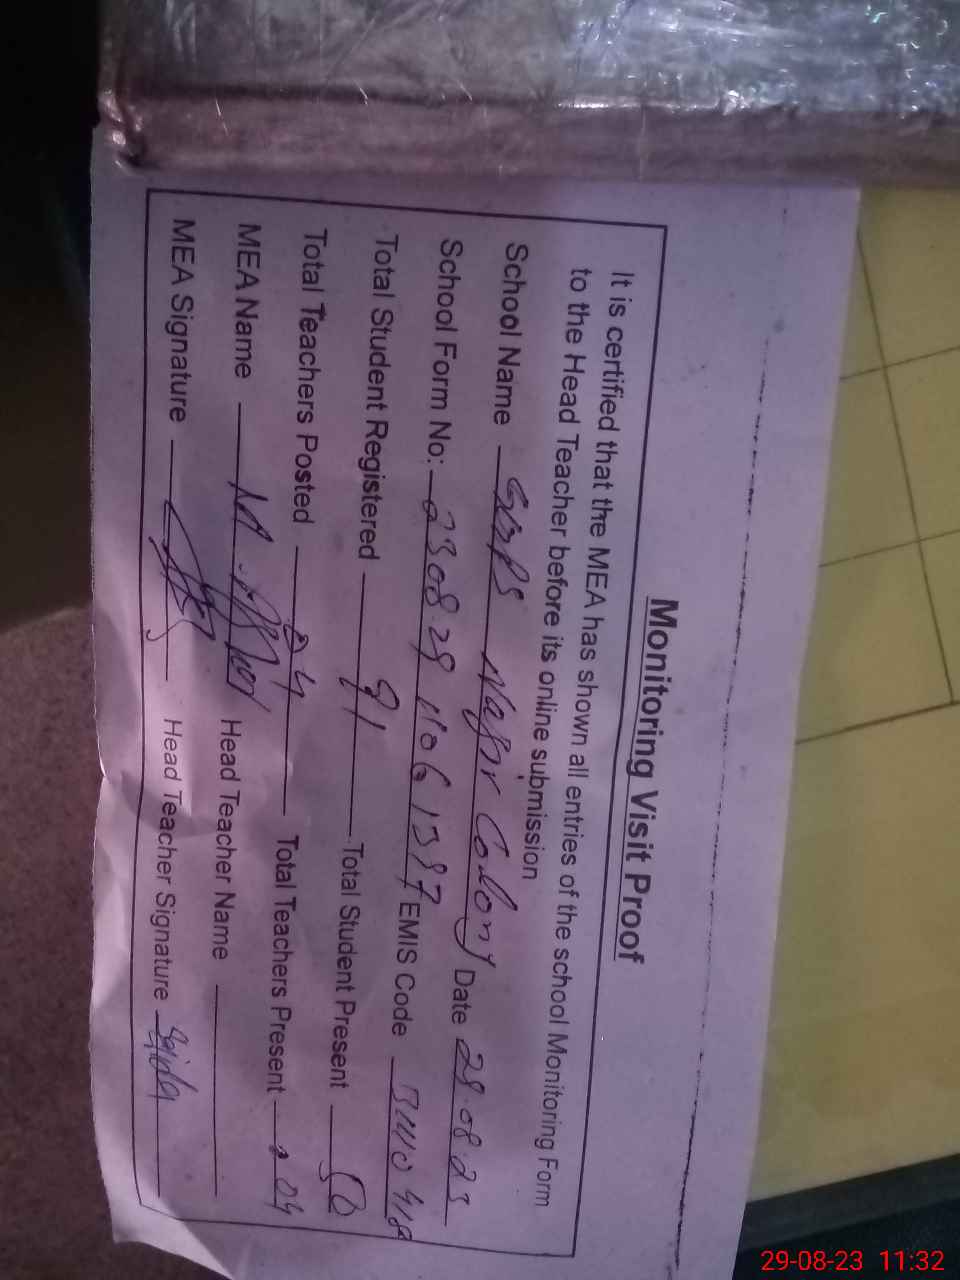 Monitoring Visit Proof
It is certified that the MEA has shown all entries of the school Monitoring Form
to the Head Teacher before its online submission
School Name Colony Date 29.08.23
School Form No: EMIS Code
Total Student Registered 91 Total Student Present 50
Total Teachers Posted 04 Total Teachers Present 04
MEA Name M. Head Teacher Name
MEA Signature Head Teacher Signature
29-08-23 11:32